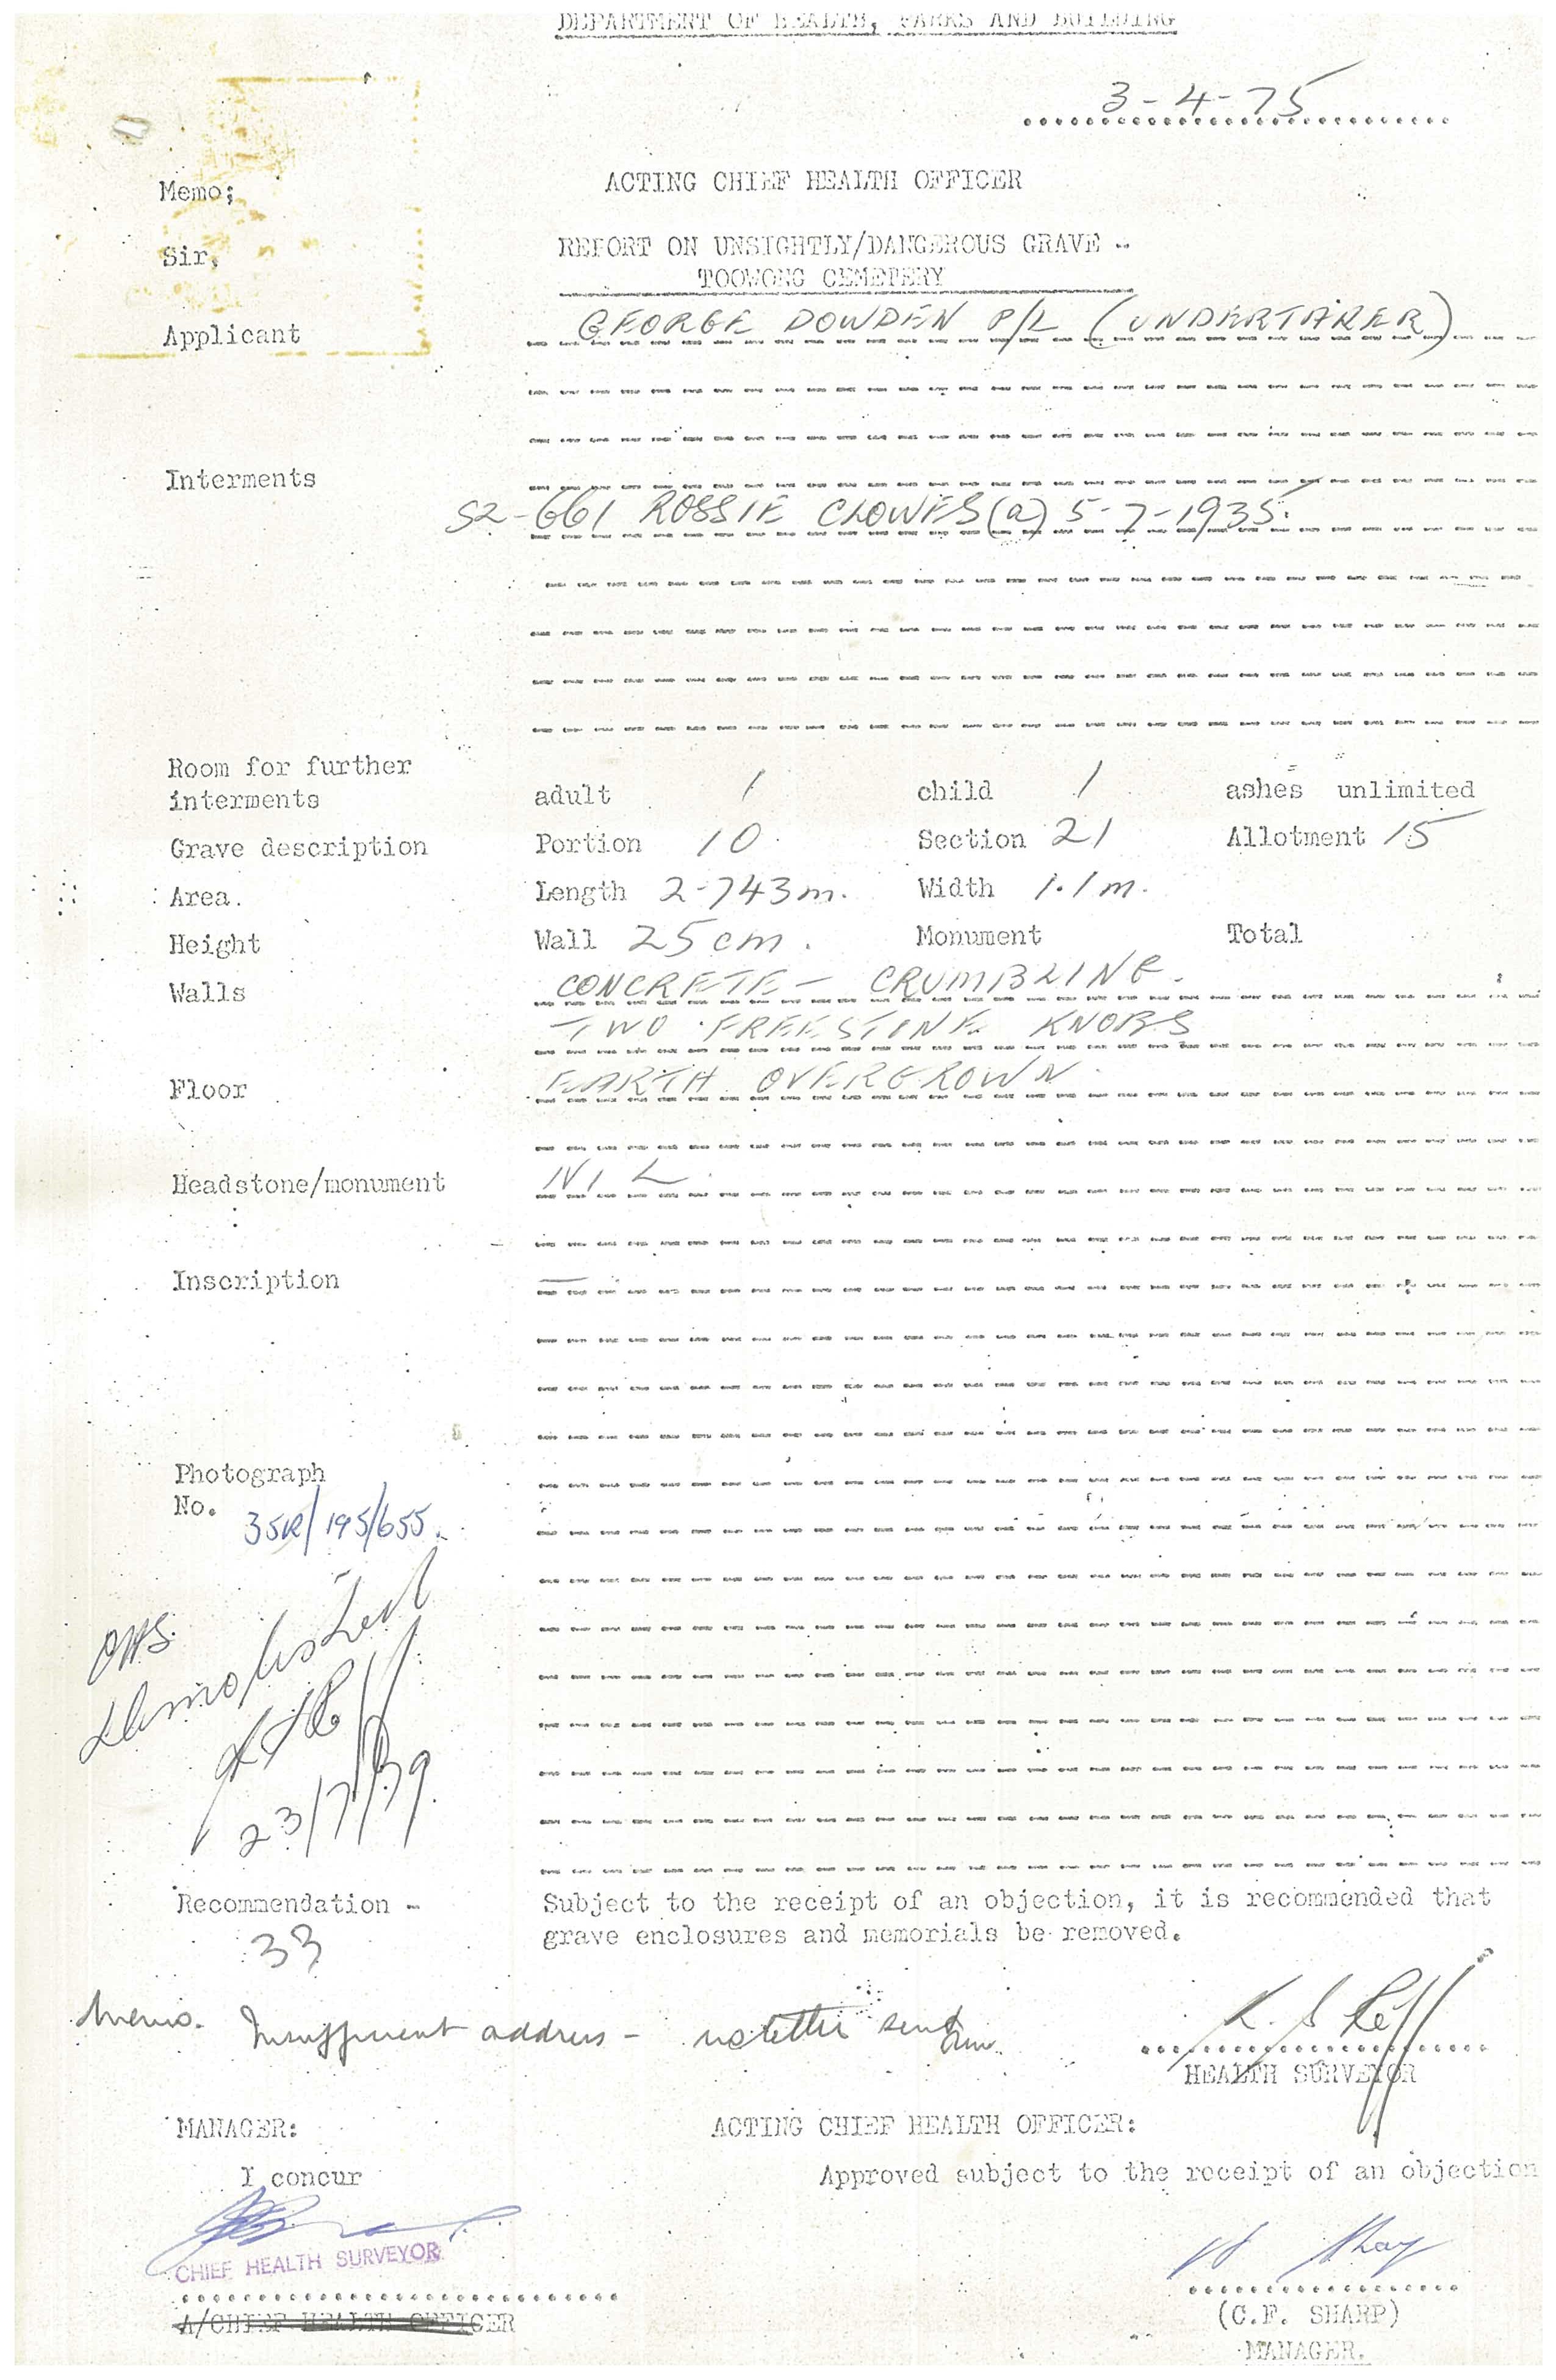 DEPARTMENT OF HEALTH, PARKS AND BUILDING
3-4-75
Memo; ACTING CHIEF HEALTH OFFICER
Sir, REPORT ON UNSIGHTLY/DANGEROUS GRAVE -
TOOWONG CEMETERY
Applicant GEORGE DOWDEN P/L (UNDERTAKER)
Interments
S2-661 ROSSIE CLOWES (a) 5-7-1935.
Room for further
interments adult 1 child 1 ashes unlimited
Grave description Portion 10 Section 21 Allotment 15
Area. Length 2-743m. Width 1.1m.
Height Wall 25cm. Monument Total
Walls CONCRETE - CRUMBLING.
TWO FREESTONE KNOBS
Floor EARTH OVERGROWN.
Headstone/monument NIL.
Inscription —
Photograph
No. 35R/195/655.
OMS.
Demolished
23/7/79.
Recommendation - Subject to the receipt of an objection, it is recommended that
grave enclosures and memorials be removed.
33
Memo. Insufficient address - no letter sent
HEALTH SURVEYOR
MANAGER: ACTING CHIEF HEALTH OFFICER:
I concur Approved subject to the receipt of an objection
CHIEF HEALTH SURVEYOR
A/CHIEF HEALTH OFFICER
(C.F. SHARP)
MANAGER.